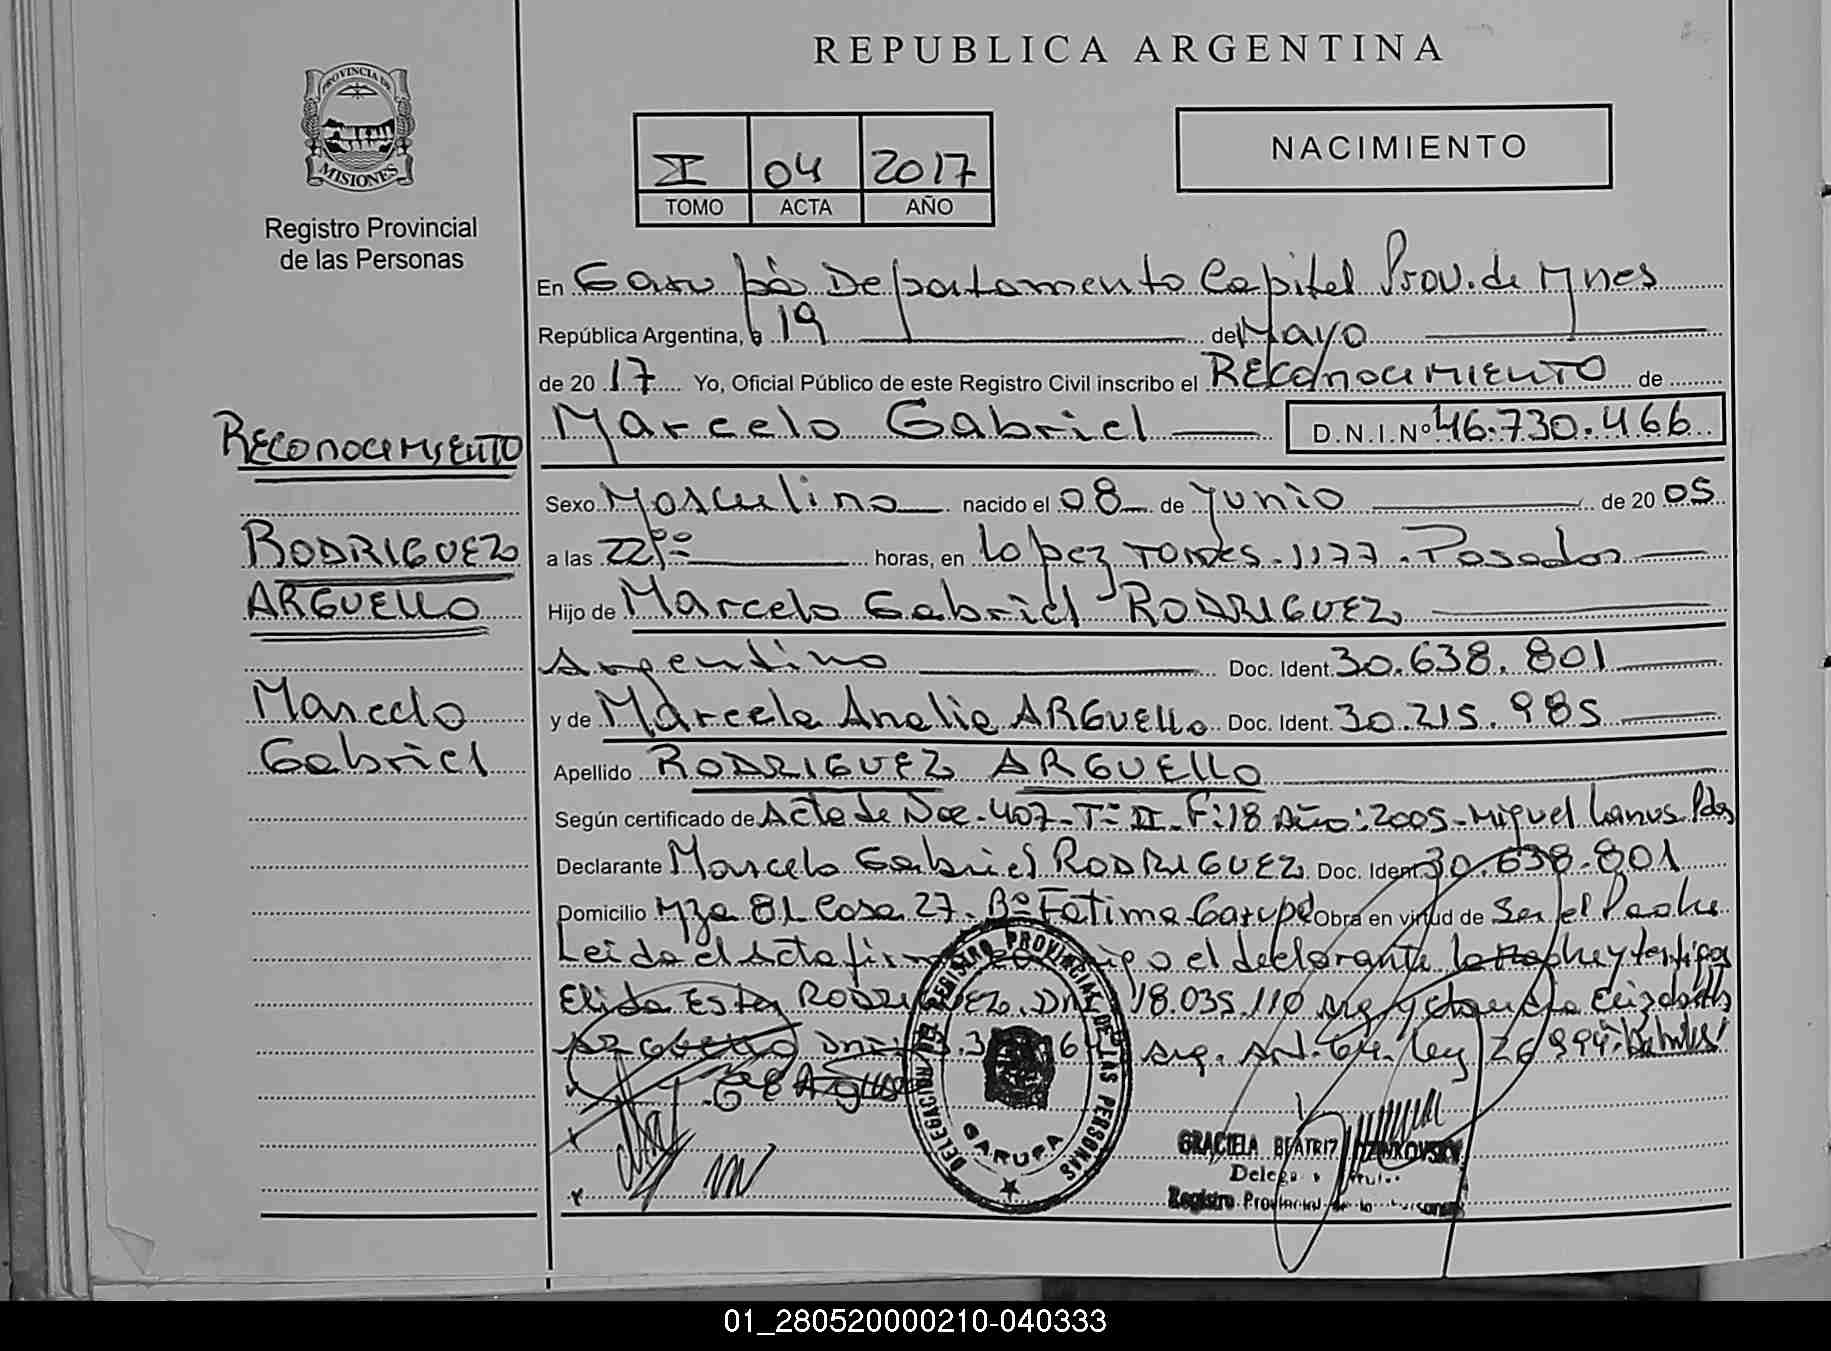 REPUBLICA ARGENTINA
PROVINCIA DE
MISIONES
Registro Provincial
de las Personas
I 04 2017
TOMO ACTA AÑO
NACIMIENTO
En Garupá Departamento Capital Prov. de Mnes
República Argentina, a 19 de Mayo
de 2017 Yo, Oficial Público de este Registro Civil inscribo el RECONOCIMIENTO de
Marcelo Gabriel D.N.I.Nº 46.730.466
RECONOCIMIENTO
RODRIGUEZ
ARGUELLO
Marcelo
Gabriel
Sexo Masculino nacido el 08 de Junio de 2005
a las 22,00 horas, en Lopez TORRES. 1177. Posadas
Hijo de Marcelo Gabriel RODRIGUEZ
Argentino Doc. Ident. 30.638.801
y de Marcela Analia ARGUELLO Doc. Ident. 30.215.985
Apellido RODRIGUEZ ARGUELLO
Según certificado de Acta de Nac. 407- T: II- F:18 Año: 2005- Miguel Lanus Pdas
Declarante Marcelo Gabriel RODRIGUEZ Doc. Ident 30.638.801
Domicilio Mza 81 Casa 27- Bº Fatima- Garupá Obra en virtud de Ser el Padre
Leida el Acta el declarante la madre y testigos
Elida Ester RODRIGUEZ. DNI 18.035.110 Arg y
Arg. Art. 64. Ley 26994.
REGISTRO PROVINCIAL DE LAS PERSONAS
DELEGACION
GARUPA
GRACIELA BEATRIZ
Registro Provincial de las Personas
01_280520000210-040333